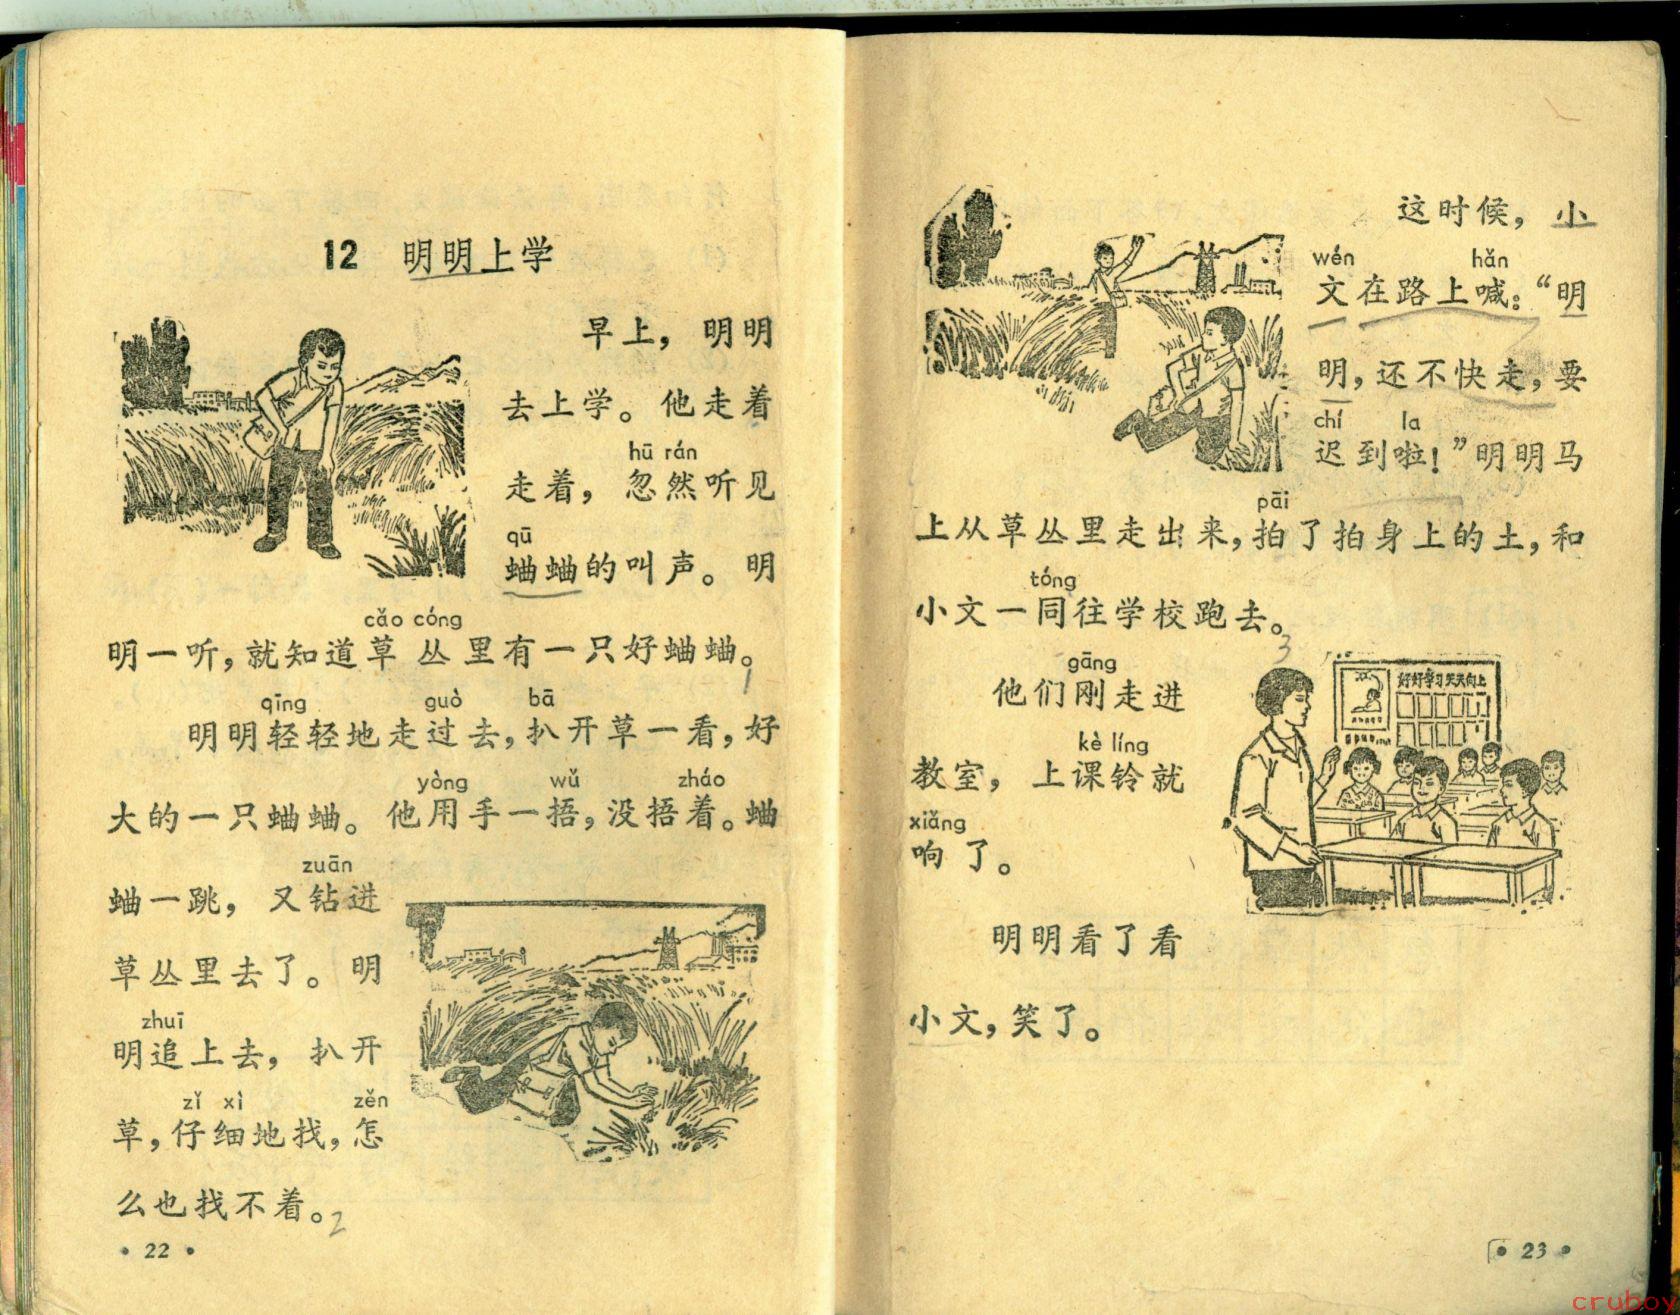 12 明明上学
早上，明明
去上学。他走着
hū rán
走着，忽然听见
qū
蛐蛐的叫声。明
cǎo cóng
明一听，就知道草丛里有一只好蛐蛐。
1
qīng guò bā
明明轻轻地走过去，扒开草一看，好
yòng wǔ zháo
大的一只蛐蛐。他用手一捂，没捂着。蛐
zuān
蛐一跳，又钻进
草丛里去了。明
zhuī
明追上去，扒开
zǐ xì zěn
草，仔细地找，怎
么也找不着。2
• 22 •
这时候，小
wén hǎn
文在路上喊：“明
明，还不快走，要
chí la
迟到啦！”明明马
pāi
上从草丛里走出来，拍了拍身上的土，和
tóng
小文一同往学校跑去。
3
gāng
他们刚走进
kè líng
教室，上课铃就
xiǎng
响了。
明明看了看
小文，笑了。
好好学习天天向上
• 23 •
cruboy